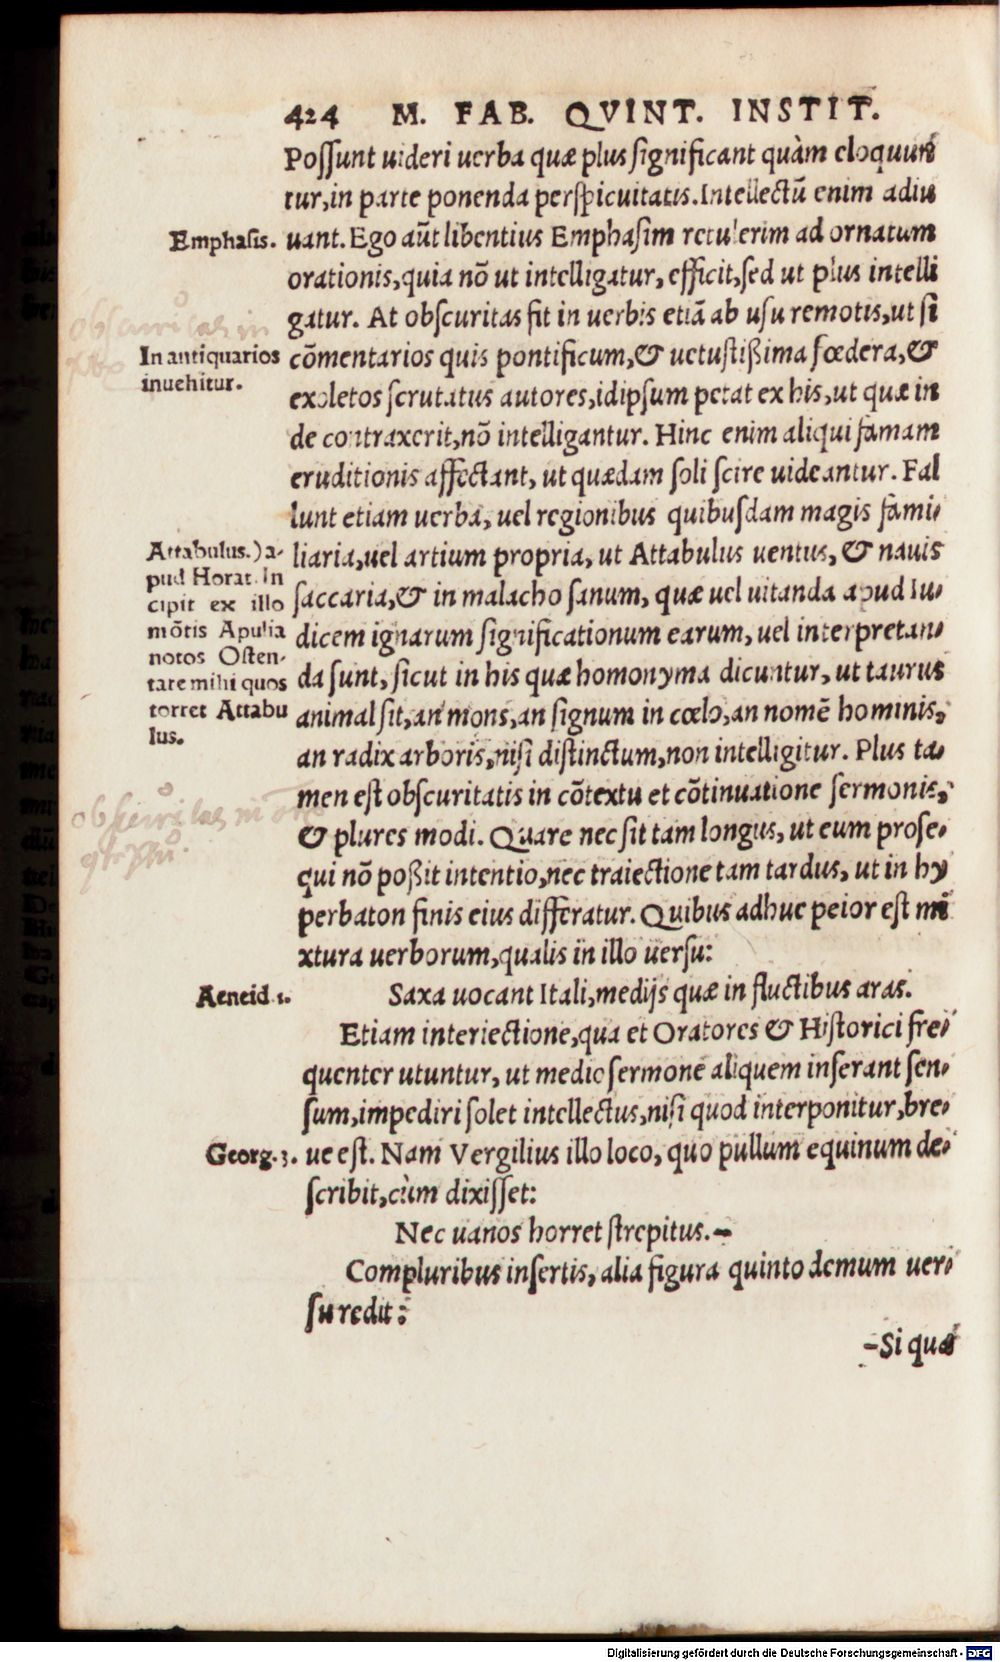 424 M. FAB. QVINT. INSTIT.
Possunt uideri uerba quæ plus significant quàm eloquun
tur, in parte ponenda perspicuitatis. Intellectū enim adiu
Emphasis.
uant. Ego aūt libentius Emphasim retulerim ad ornatum
orationis, quia nō ut intelligatur, efficit, sed ut plus intelli
obscuritas in
gatur. At obscuritas fit in uerbis etiā ab usu remotis, ut si
In antiquarios
inuehitur.
cōmentarios quis pontificum, & uetustißima fœdera, &
exoletos scrutatus autores, idipsum petat ex his, ut quæ in
de contraxerit, nō intelligantur. Hinc enim aliqui famam
eruditionis affectant, ut quædam soli scire uideantur. Fal
lunt etiam uerba, uel regionibus quibusdam magis fami-
Attabulus.) a-
pud Horat. In
cipit ex illo
mōtis Apulia
notos Osten-
tare mihi quos
torret Attabu
lus.
liaria, uel artium propria, ut Attabulus uentus, & nauis
saccaria, & in malacho sanum, quæ uel uitanda apud Iu-
dicem ignarum significationum earum, uel interpretan-
da sunt, sicut in his quæ homonyma dicuntur, ut taurus
animal sit, an mons, an signum in cœlo, an nomē hominis,
an radix arboris, nisi distinctum, non intelligitur. Plus ta-
men est obscuritatis in cōtextu et cōtinuatione sermonis,
obscuritas in
& plures modi. Quare nec sit tam longus, ut eum prose-
qui nō poßit intentio, nec traiectione tam tardus, ut in hy
perbaton finis eius differatur. Quibus adhuc peior est mi
xtura uerborum, qualis in illo uersu:
Aeneid 1.
Saxa uocant Itali, medijs quæ in fluctibus aras.
Etiam interiectione, qua et Oratores & Historici fre-
quenter utuntur, ut medio sermone aliquem inserant sen-
sum, impediri solet intellectus, nisi quod interponitur, bre-
Georg. 3.
ue est. Nam Vergilius illo loco, quo pullum equinum de-
scribit, cùm dixisset:
Nec uanos horret strepitus.-
Compluribus insertis, alia figura quinto demum uer-
su redit:
-Si quæ
Digitalisierung gefördert durch die Deutsche Forschungsgemeinschaft - DFG